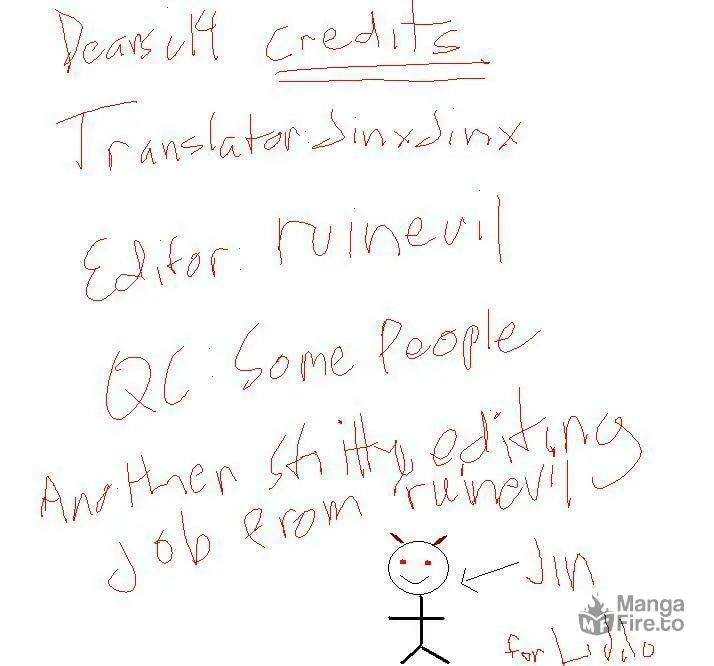 Dears ch14 credits
Translator: JinxJinx
Editor: ruinevil
QC: Some People
Another shitty editing
job from ruinevil
Jin
for
Manga
Fire.to